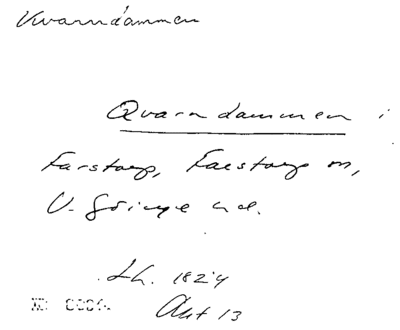 Kvarndammen
Qvarndammen i
Farstorp, Farstorp sn,
V. Göinge hd.
Lh. 1824
Akt 13